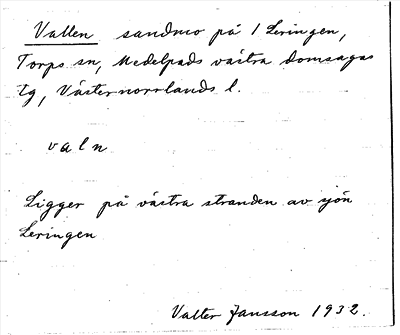 Vallen sandmo på 1 Leringen,
Torps sn, Medelpads västra domsagas
tg, Västernorrlands l.
valn
Ligger på västra stranden av sjön
Leringen
Valter Jansson 1932.